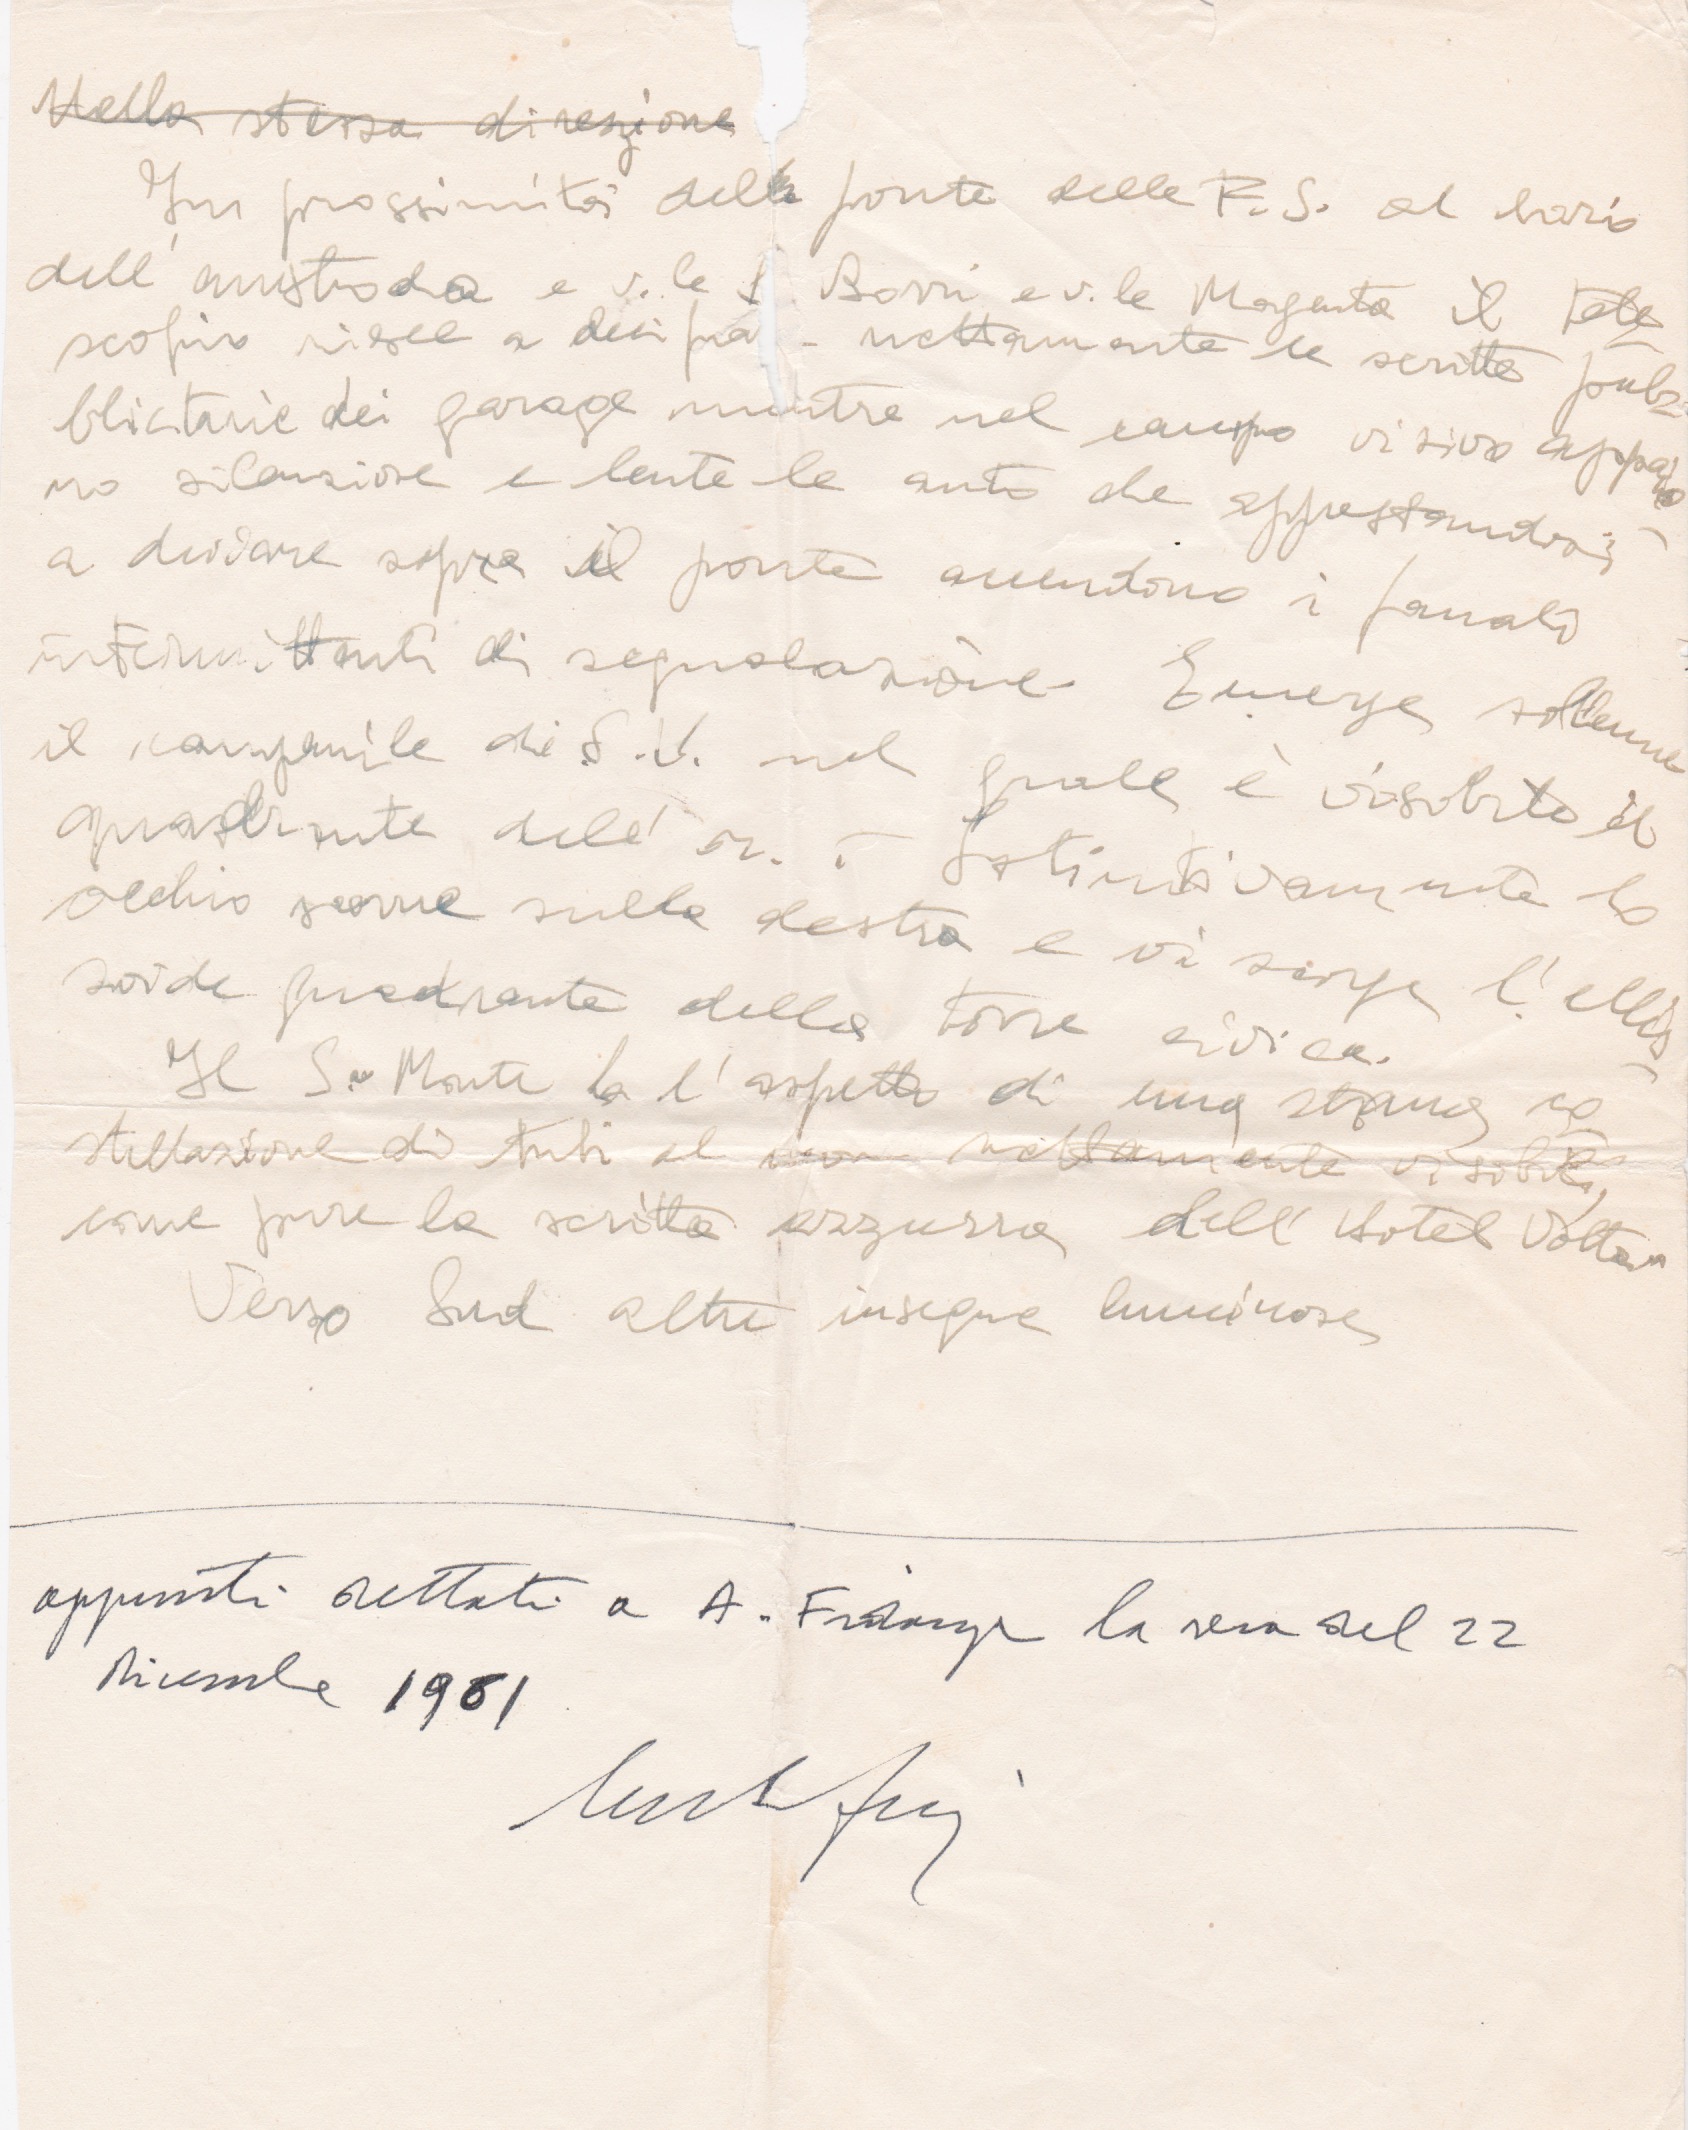 Nella stessa direzione
In prossimità del ponte delle F.S. al bivio
dell'autostrada e v.le L. Borri e v.le Magenta il tele
scopio riesce a decifra- nettamente le scritte pub=
blicitarie dei garage mentre nel campo visivo appaio
no silenziose e lente le auto che apprestandosi
a deviare sopra il ponte accendono i fanali
intermittenti di segnalazione Emerge solenne
il campanile di S.V. nel quale è visibile il
quadrante dell'or. - Istintivamente lo
occhio scorre sulla destra e vi scorge l'ellis-
soide quadrante della torre civica.
Il S. Monte ha l'aspetto di una strana co
stellazione di tubi al neon nettamente visibili,
come pure la scritta azzurra dell'Hotel Volta"
Verso Sud altre insegne luminose
appunti dettati a A. la sera del 22
dicembre 1961